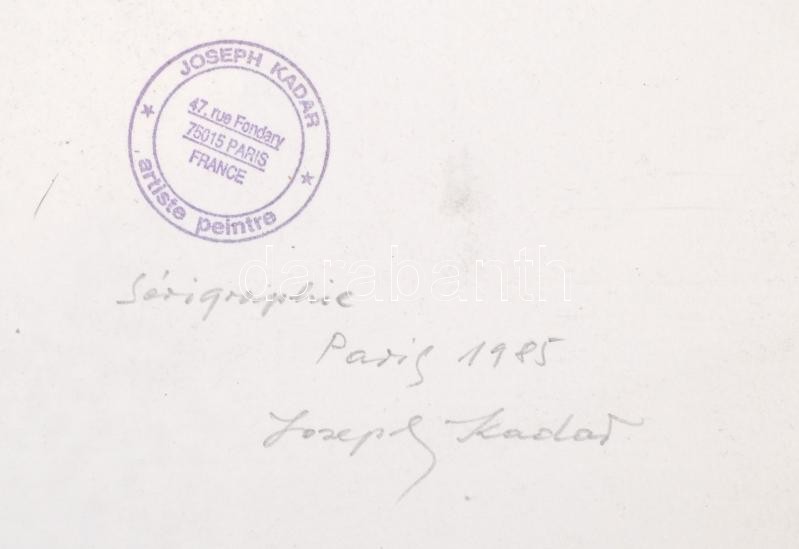 JOSEPH KADAR
47, rue Fondary
75015 PARIS
FRANCE
artiste peintre
darabanth
Sérigraphie
Paris 1985
Joseph Kadar